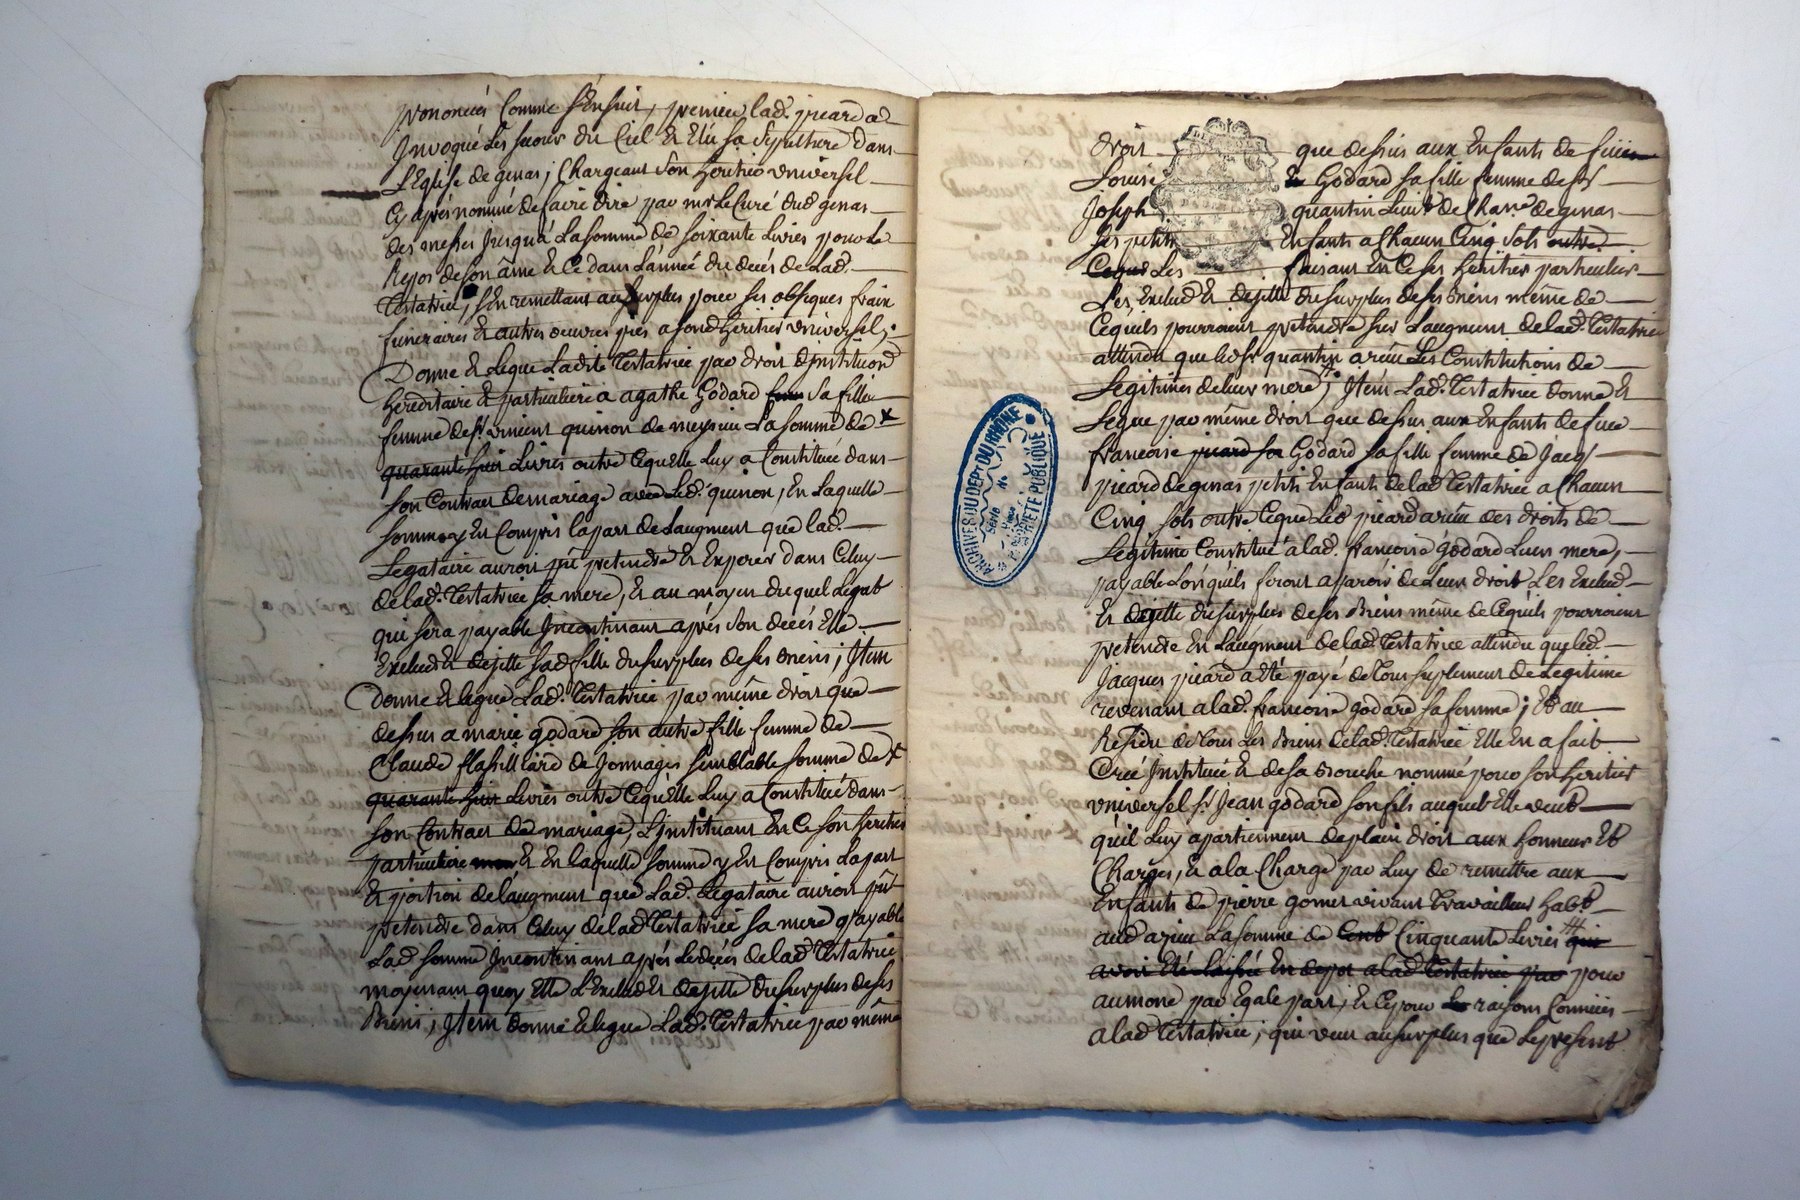 prononcés Comme s'Ensuit, premier lad. picard a
Invoqué Les secour du Ciel Et Elu sa Sepulture Dans
L'Eglise de genas, Chargeant son heritier universel
Cy après nommé de faire dire par mr Le Curé dud genas
des messes Jusqu'à La somme de soixante Livres pour Le
Repos de son âme Et Ce dans L'année du decés de Lad.
Testatrice, s'En remettant au surplus pour ses obseques fraix
funeraires Et autres oeuvres pies a sond heritier universel,
Donne Et Legue Ladite Testatrice par droit d'institution
hereditaire Et particuliere a agathe Godard sa fille
femme de sr vincent quinon de meysieu La somme de
quarante huit Livres outre Cequ'Elle Luy a Constitué dans
son Contract de mariage avec Led. quinon, En Laquelle
somme y En Compris la part de Laugment que lad.
Legataire auroit pû pretendre Et Exposer dans Celuy
de lad. Testatrice sa mere, Et au moyen duquel Legat
qui sera payable Incontinant après son decés Elle
Exclud Et dejette sad fille du surplus de ses Biens; Item
Donne Et legue Lad. Testatrice par même droit que
dessus a marie godard son autre fille femme de
Claude flassillard de Jonnages semblable somme de
quarante huit Livres outre Cequ'Elle Luy a Constitué dans
son Contract de mariage, L'instituant En Ce son heritiere
particuliere Et En laquelle somme y En Compris La part
Et portion de l'augment que Lad. Legataire auroit pû
pretendre dans Celuy de lad Testatrice sa mere payable
Lad somme Incontinant après Le decés de lad Testatrice
moyenant quoy Elle L'Exclud Et dejette du surplus de ses
Biens; Item donne Et legue Lad. Testatrice par même
droit que dessus aux Enfants de feüe
Louise Godard sa fille femme de sr
Joseph quantin de genas
ses petits Enfants a Chacun Cinq sols outre
Les faisant En Ce ses heritiers particulier
Les Exclud Et dejette du surplus de ses Biens même de
Cequ'ils pourroient pretendre sur Laugment de lad. Testatrice
attendu que led sr quantin a reçu Les Constitutions de
Legitimes de leur mere; Item Lad. Testatrice donne Et
Legue par même droit que dessus aux Enfants de feüe
francoise picard sa Godard sa fille femme de Jacqs
picard de genas petits Enfants de lad Testatrice a Chacun
Cinq sols outre Ceque Led picard a reçu des droits de
Legitime Constitué a lad. francoise godard Leur mere,
payable Lorsqu'ils feront aparoir de Leur droit Les Exclud
Et dejette du surplus de ses Biens même de Cequ'ils pourroient
pretendre En Laugment de lad Testatrice attendu que led.
Jacques picard a Eté payé de tous suplement de Legitime
revenant a lad. francoise godard sa femme; Et au
Residu de tous Les Biens de lad. Testatrice Elle En a fait
Creé Institué Et de sa Bouche nommé pour son heritier
universel sr Jean godard son fils auquel Elle veut
qu'il Luy apartiennent de plein droit aux honneurs Et
Charges, Et a la Charge par Luy de remettre aux
Enfants de pierre gomet vivant travailleur habt
aud azieu La somme de Cent Cinquante Livres qui
avoit Eté Laissée En depot a lad Testatrice par pour
aumone par Egale part, Et Ce pour raisons Connües
a lad Testatrice, qui veut au surplus que Le present
ARCHIVES DU DEPt DU RHÔNE
Série
No
PROPRIÉTÉ PUBLIQUE